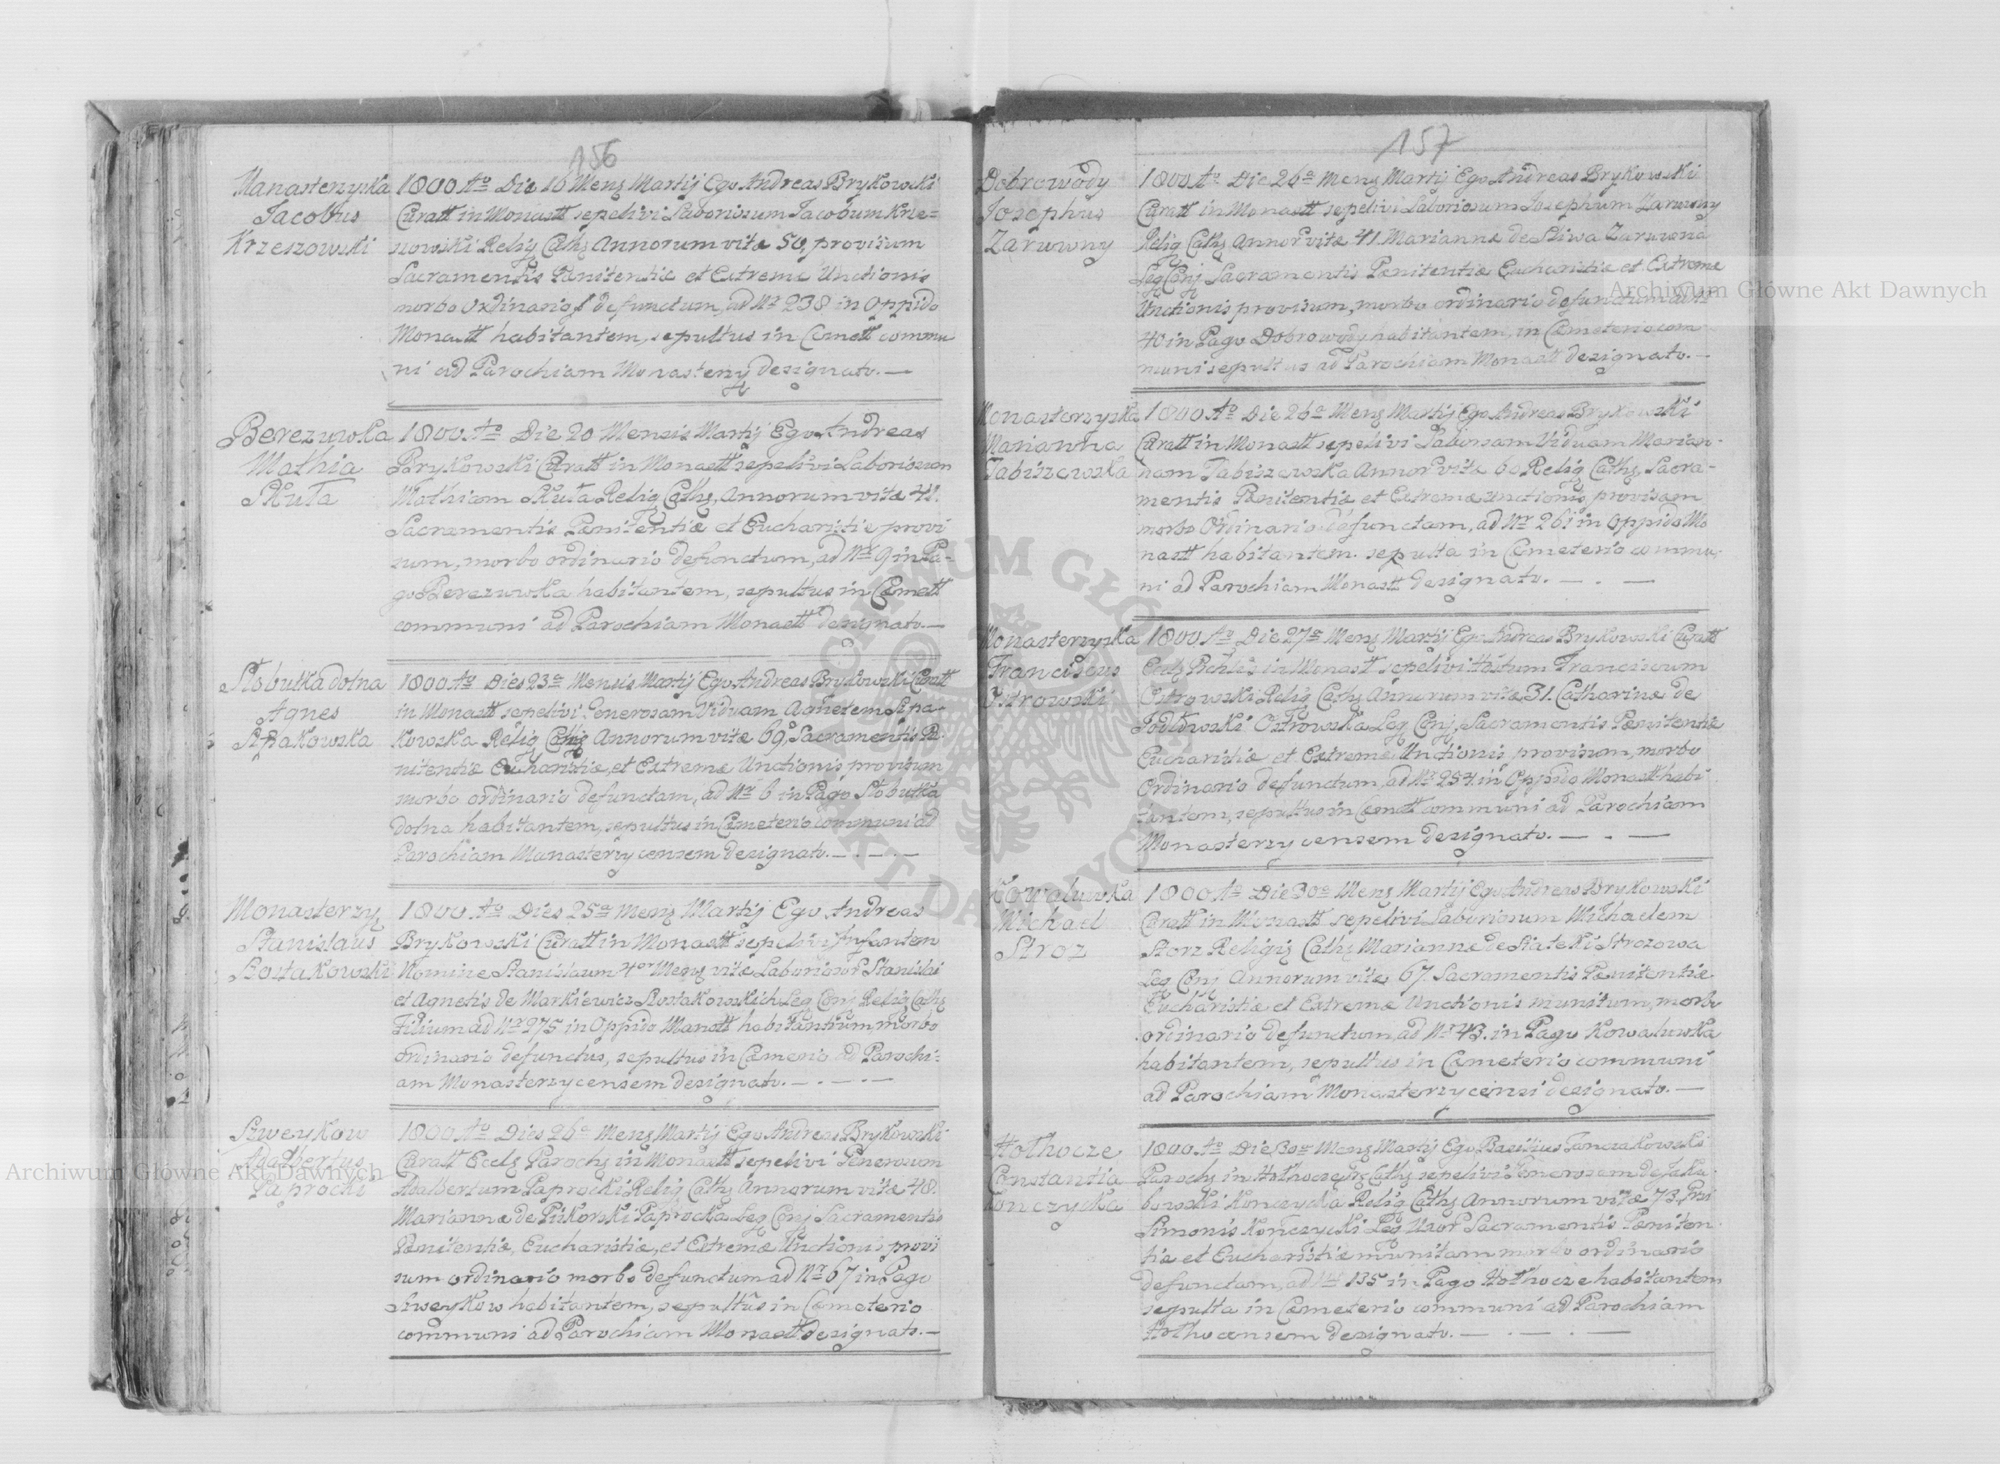 156
Manasterzyska
Jacobus
Krzeszowski
1800 Ao Die 16 Mens Martij Ego Andreas Brykowski
Curatt in Monastt sepelivi Laboriosum Jacobum Krze=
szowski Relig Cath Annorum vitæ 50, provisum
Sacramentis Pænitentiæ et Extremæ Unctionis
morbo Ordinario defunctum, ad Nr 238 in Oppido
Monastt habitantem, sepultus in Cæmett commu
ni ad Parochiam Monasterzy designato. —
Berezuwka
Mathia
Skuła
1800 Ao Die 20 Mensis Martij Ego Andreas
Brykowski Curatt in Monastt sepelivi Laboriosum
Mathiam Skuła Relig Cath, Annorum vitæ 48.
Sacramentis Pænitentiæ et Eucharistiæ provi
sum, morbo ordinario defunctum, ad Nr 9 in Pa-
go Berezuwka habitantem, sepultus in Cæmett
communi ad Parochiam Monastt designato. —
Słobutka dolna
Agnes
Szpakowska
1800 Ao Dies 23a Mensis Martij Ego Andreas Brykowski Curatt
in Monastt sepelivi Generosam Viduam Agnetem Szpa-
kowska Relig Cath Annorum vitæ 69, Sacramentis Pæ
nitentiæ Eucharistiæ, et Extremæ Unctionis provisum
morbo ordinario defunctam, ad Nr 6 in Pago Słobutka
dolna habitantem, sepultus in Cæmeterio communi ad
Parochiam Manasterzycensem designato. — . — . —
Monasterzy
Stanislaus
Szostakowski
1800 Ao Dies 25a Mens Martij Ego Andreas
Brykowski Curatt in Monastt sepelivi Infantem
Nomine Stanislaum 4or Mens vitæ Laboriosor Stanislai
et Agnetis de Markiewicz Szostakowskich Leg Conj Relig Cath
Filium ad Nr 275 in Oppido Manastt habitantium, morbo
ordinario defunctus, sepultus in Cæmerio ad Parochi=
am Monasterzycensem designato. — . — . —
Szweykow
Adalbertus
Paprocki
1800 Ao Dies 26a Mens Martij Ego Andreas Brykowski
Curatt Eccls Parochs in Monastt sepelivi Generosum
Adalbertum Paprocki Relig Cath Annorum vitæ 48.
Mariannæ de Pikorski Paprocka Leg Conj Sacramentis
Pænitentiæ, Eucharistiæ, et Extremæ Unctionis provi
sum ordinario morbo defunctum ad Nr 67 in Pago
Szweykow habitantem, sepultus in Cæmeterio
communi ad Parochiam Monastt designato. —
157
Dobrowody
Josephus
Zaruwny
1800 Ao Die 26a Mens Martij Ego Andreas Brykowski
Curatt in Monastt sepelivi Laboriosum Josephum Zaruwny
Relig Cath Annor vitæ 41. Mariannæ de Sliwa Zaruwna
Leg Conj Sacramentis Pænitentiæ Eucharistiæ et Extremæ
Unctionis provisum, morbo ordinario defunctum ad Nr
40 in Pago Dobrowody habitantem, in Cæmeterio com-
muni sepultus ad Parochiam Monastt designato. —
Monasterzyska
Marianna
Tabiszewska
1800 Ao Die 26a Mens Martij Ego Andreas Brykowski
Curatt in Monastt sepelivi Laborsam Viduam Marian-
nam Tabiszewska Annor vitæ 60 Relig Cath, Sacra-
mentis Pænitentiæ et Extremæ Unctionis, provisam
morbo Ordinario defunctam, ad Nr 261 in Oppido Mo
nastt habitantem. sepulta in Cæmeterio commu-
ni ad Parochiam Monastt designato. — . —
Monasterzyska
Franciscus
Ostrowski
1800 Ao Die 27a Mens Martij Ego Andreas Brykowski Curatt
in Monast sepelivi Franciscum
Ostrowski Relig Cath Annorum vitæ 31. Catharinæ de
Jodłowski Ostrowska Leg Conj, Sacramentis Pænitentiæ
Eucharistiæ et Extremæ Unctionis, provisum, morbo
Ordinario defunctum, ad Nr 254 in Oppido Monastt habi
tantem, sepultus in Cæmett communi ad Parochiam
Monasterzycensem designato. — . —
Kowaluwka
Michael
Stroz
1800 Ao Die 30a Mens Martij Ego Andreas Brykowski
Curatt in Monastt sepelivi Laboriosum Michaelem
Storz Religis Cath Mariannæ de Białeki Strozowa
Leg Conj Annorum vitæ 67. Sacramentis Pænitentiæ
Eucharistiæ et Extremæ Unctionis munitum, morbo
ordinario defunctum, ad Nr 43. in Pago Kowaluwka
habitantem, sepultus in Cæmeterio communi
ad Parochiam Monasterzycensi designato. —
Hołhocze
Constantia
Konczycka
1800 Ao Die 30a Mens Martij Ego Basilius Tanczakowski
Parochs in Hołhocze Cath sepelivi Generosam de Jaku-
bowski Konczycka Relig Cath Annorum vitæ 73,
Simonis Konczycki Leg Uxor Sacramentis Pæniten-
tiæ et Eucharistiæ munitam morbo ordinario
defunctam, ad Nr 135 in Pago Hołhocze habitantem
sepulta in Cæmeterio communi ad Parochiam
Hołhocensem designato. — . — . —
Archiwum Główne Akt Dawnych
Archiwum Główne Akt Dawnych
ARCHIWUM GŁÓWNE AKT DAWNYCH